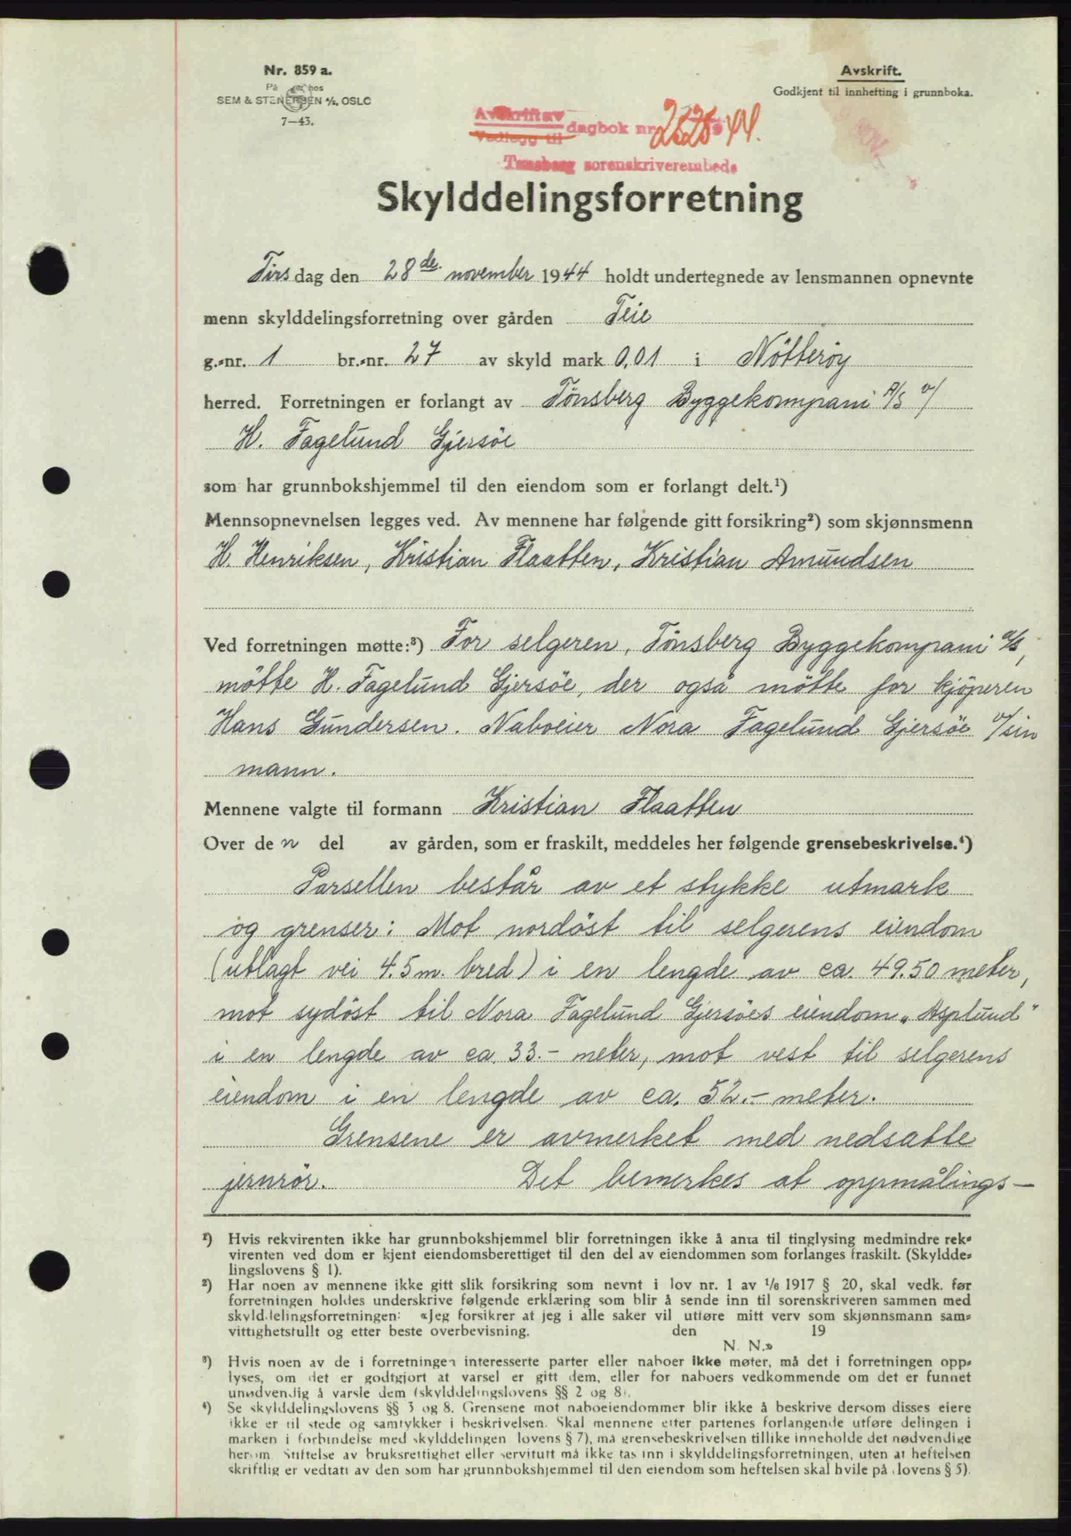 Nr. 859 a.
På hos
SEM & STENERSEN A/S, OSLO
7—43.
Avskrift.
Godkjent til innhefting i grunnboka.
Avskrift av
Vedlegg til
dagbok nr. 2525 1944.
Tønsberg sorenskriverembede
Skylddelingsforretning
Tirsdag den 28de november 1944 holdt undertegnede av lensmannen opnevnte
menn skylddelingsforretning over gården Teie
g.-nr. 1 br.-nr. 27 av skyld mark 0,01 i Nötteröy
herred. Forretningen er forlangt av Tönsberg Byggekompani A/S v/
H. Fagelund Gjersöe
som har grunnbokshjemmel til den eiendom som er forlangt delt.¹)
Mennsopnevnelsen legges ved. Av mennene har følgende gitt forsikring²) som skjønnsmenn
H. Henriksen, Kristian Flaatten, Kristian Amundsen
Ved forretningen møtte:³) For selgeren, Tönsberg Byggekompani a/s,
mötte H. Fagelund Gjersöe, der også mötte for kjöperen
Hans Gundersen. Naboeier Nora Fagelund Gjersöe v/sin
mann.
Mennene valgte til formann Kristian Flaatten
Over den del av gården, som er fraskilt, meddeles her følgende grensebeskrivelse.⁴)
Parsellen består av et stykke utmark
og grenser: Mot nordöst til selgerens eiendom
(utlagt vei 4.5 m. bred) i en lengde av ca. 49.50 meter,
mot sydöst til Nora Fagelund Gjersöes eiendom „Asplund"
i en lengde av ca 33.- meter, mot vest til selgerens
eiendom i en lengde av ca. 52.- meter.
Grensene er avmerket med nedsatte
jernrör. Det bemerkes at oppmålings-
¹) Hvis rekvirenten ikke har grunnbokshjemmel blir forretningen ikke å anta til tinglysing medmindre rek-
virenten ved dom er kjent eiendomsberettiget til den del av eiendommen som forlanges fraskilt. (Skyldde-
lingslovens § 1).
²) Har noen av mennene ikke gitt slik forsikring som nevnt i lov nr. 1 av 1/6 1917 § 20, skal vedk. før
forretningen holdes underskrive følgende erklæring som blir å sende inn til sorenskriveren sammen med
skylddelingsforretningen: «Jeg forsikrer at jeg i alle saker vil utføre mitt verv som skjønnsmann sam-
vittighetsfullt og etter beste overbevisning. den 19
N. N.»
³) Hvis noen av de i forretningen interesserte parter eller naboer ikke møter, må det i forretningen opp-
lyses, om det er godtgjort at varsel er gitt dem, eller for naboers vedkommende om det er funnet
unødvendig å varsle dem (skylddelingslovens §§ 2 og 8).
⁴) Se skylddelingslovens §§ 3 og 8. Grensene mot naboeiendommer blir ikke å beskrive dersom disses eiere
ikke er til stede og samtykker i beskrivelsen. Skal mennene etter partenes forlangende utføre delingen i
marken i forbindelse med skylddelingen (lovens § 7), må grensebeskrivelsen tillike inneholde det nødvendige
herom. Stiftelse av bruksrettighet eller servitutt må ikke tas inn i skylddelingsforretningen, uten at heftelsen
skriftlig er vedtatt av den som har grunnbokshjemmel til den eiendom som heftelsen skal hvile på (lovens § 5).